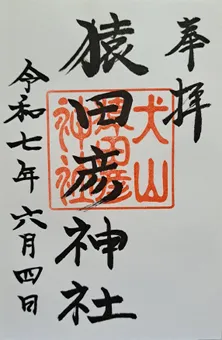 奉拝
猿田彦神社
犬山
猿田彦
神社
令和七年 六月四日